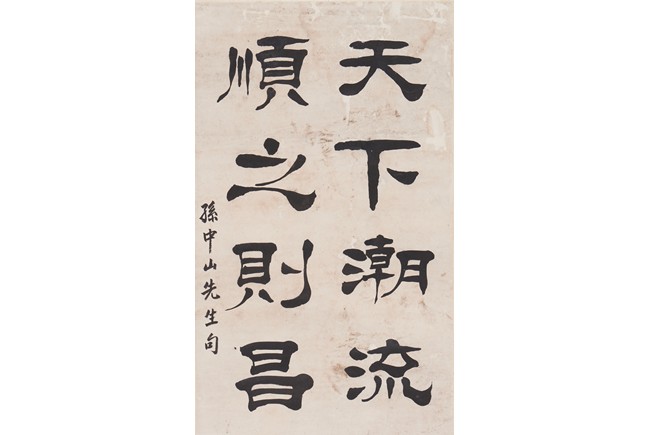 天下潮流
順之則昌
孫中山先生句